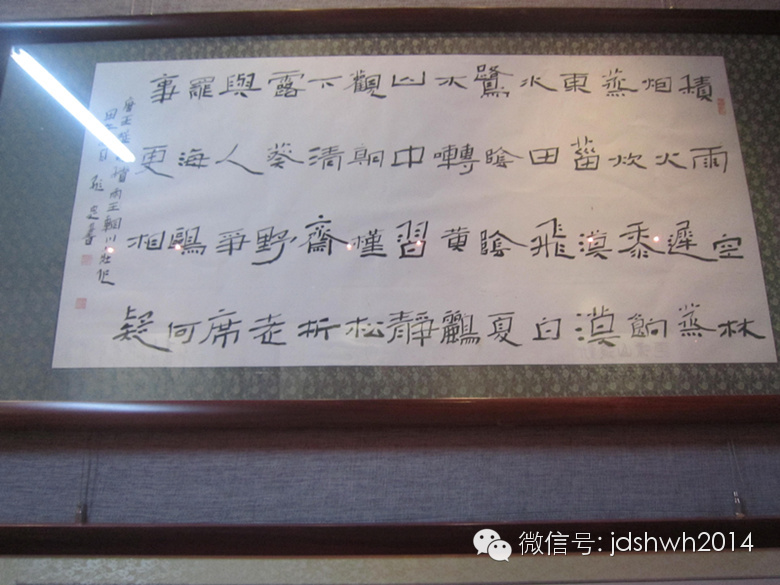 積雨空林
烟火遲蒸
藜炊黍餉
東菑漠漠
水田飛白
鷺陰陰夏
木囀黄鸝
山中習靜
觀朝槿松
下清齋折
露葵野老
與人爭席
罷海鷗何
事更相疑
唐王維 積雨 輞川莊作
微信号: jdshwh2014